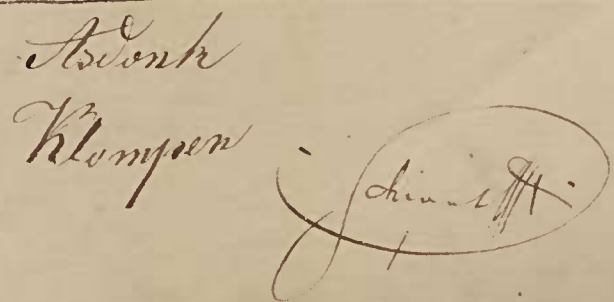 Asdonk
Klompen